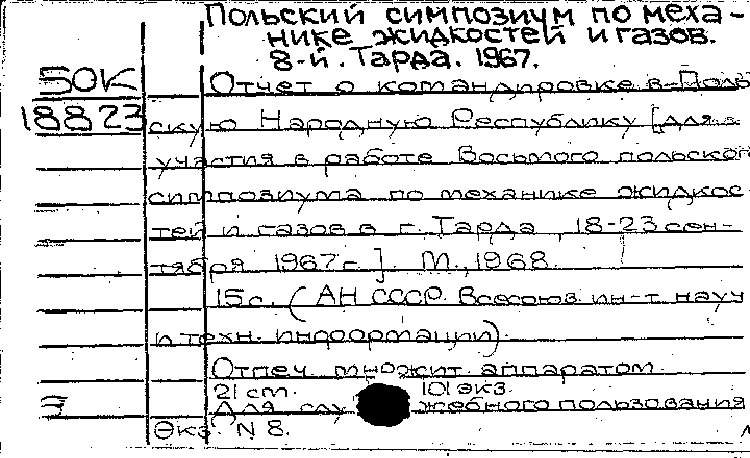 Польский симпозиум по меха-
нике жидкостей и газов.
8-й. Тарда. 1967.
50К
Отчет о командировке в Поль
18823
скую Народную Республику [для
участия в работе Восьмого польског
симпозиума по механике жидкос
тей и газов в г. Тарда, 18-23 сен-
тября 1967г.]. М., 1968.
15с. (АН СССР. Всесоюз. ин-т науч
и техн. информации).
Отпеч. множит. аппаратом.
21 см. 101 экз.
Для служебного пользования
Экз. N 8.